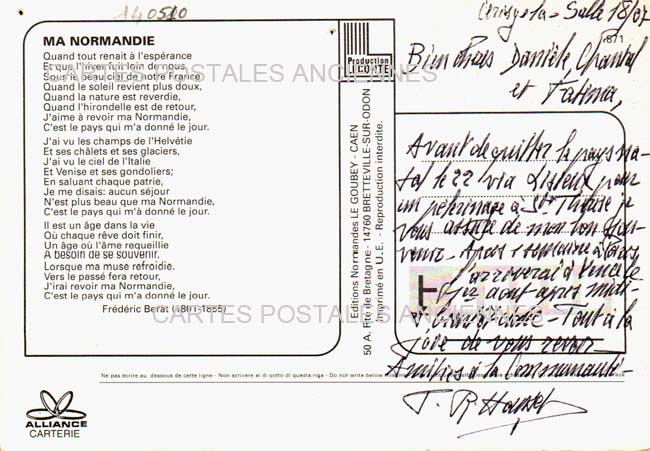 140510
MA NORMANDIE
Quand tout renait à l'espérance
Et que l'hiver fuit loin de nous
Sous le beau ciel de notre France
Quand le soleil revient plus doux,
Quand la nature est reverdie,
Quand l'hirondelle est de retour,
J'aime à revoir ma Normandie,
C'est le pays qui m'a donné le jour.
J'ai vu les champs de l'Helvétie
Et ses châlets et ses glaciers,
J'ai vu le ciel de l'Italie
Et Venise et ses gondoliers;
En saluant chaque patrie,
Je me disais: aucun séjour
N'est plus beau que ma Normandie,
C'est le pays qui m'a donné le jour.
Il est un âge dans la vie
Où chaque rêve doit finir,
Un âge où l'âme requeillie
A besoin de se souvenir.
Lorsque ma muse refroidie.
Vers le passé fera retour,
J'irai revoir ma Normandie,
C'est le pays qui m'a donné le jour.
Frédéric Berat (1801-1855)
CARTES POSTALES ANCIENNES
CARTES POSTALES ANCIENNES
Production
LECONTE
Editions Normandes LE GOUBEY - CAEN
50 A, Rte de Bretagne - 14760 BRETTEVILLE-SUR-ODON
Imprimé en U.E. - Reproduction interdite.
Cerisy-la-Salle 18/07
871
Bien chers Danièle, Chantal
et Fatima,
Avant de quitter le pays na-
tal le 22 via Lisieux pour
un pèlerinage à Ste Thérèse je
vous assure de mon bon sou-
venir - Après 1 semaine à
j'arriverai à
août après midi
Tout à la
joie de vous revoir -
Amitiés à la Communauté -
Ne pas écrire au dessous de cette ligne - Non scrivere al di sotto di questa riga - Do not write below
ALLIANCE
CARTERIE